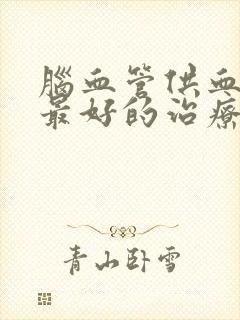 腦血管供血
最好的治療
青山卧雪